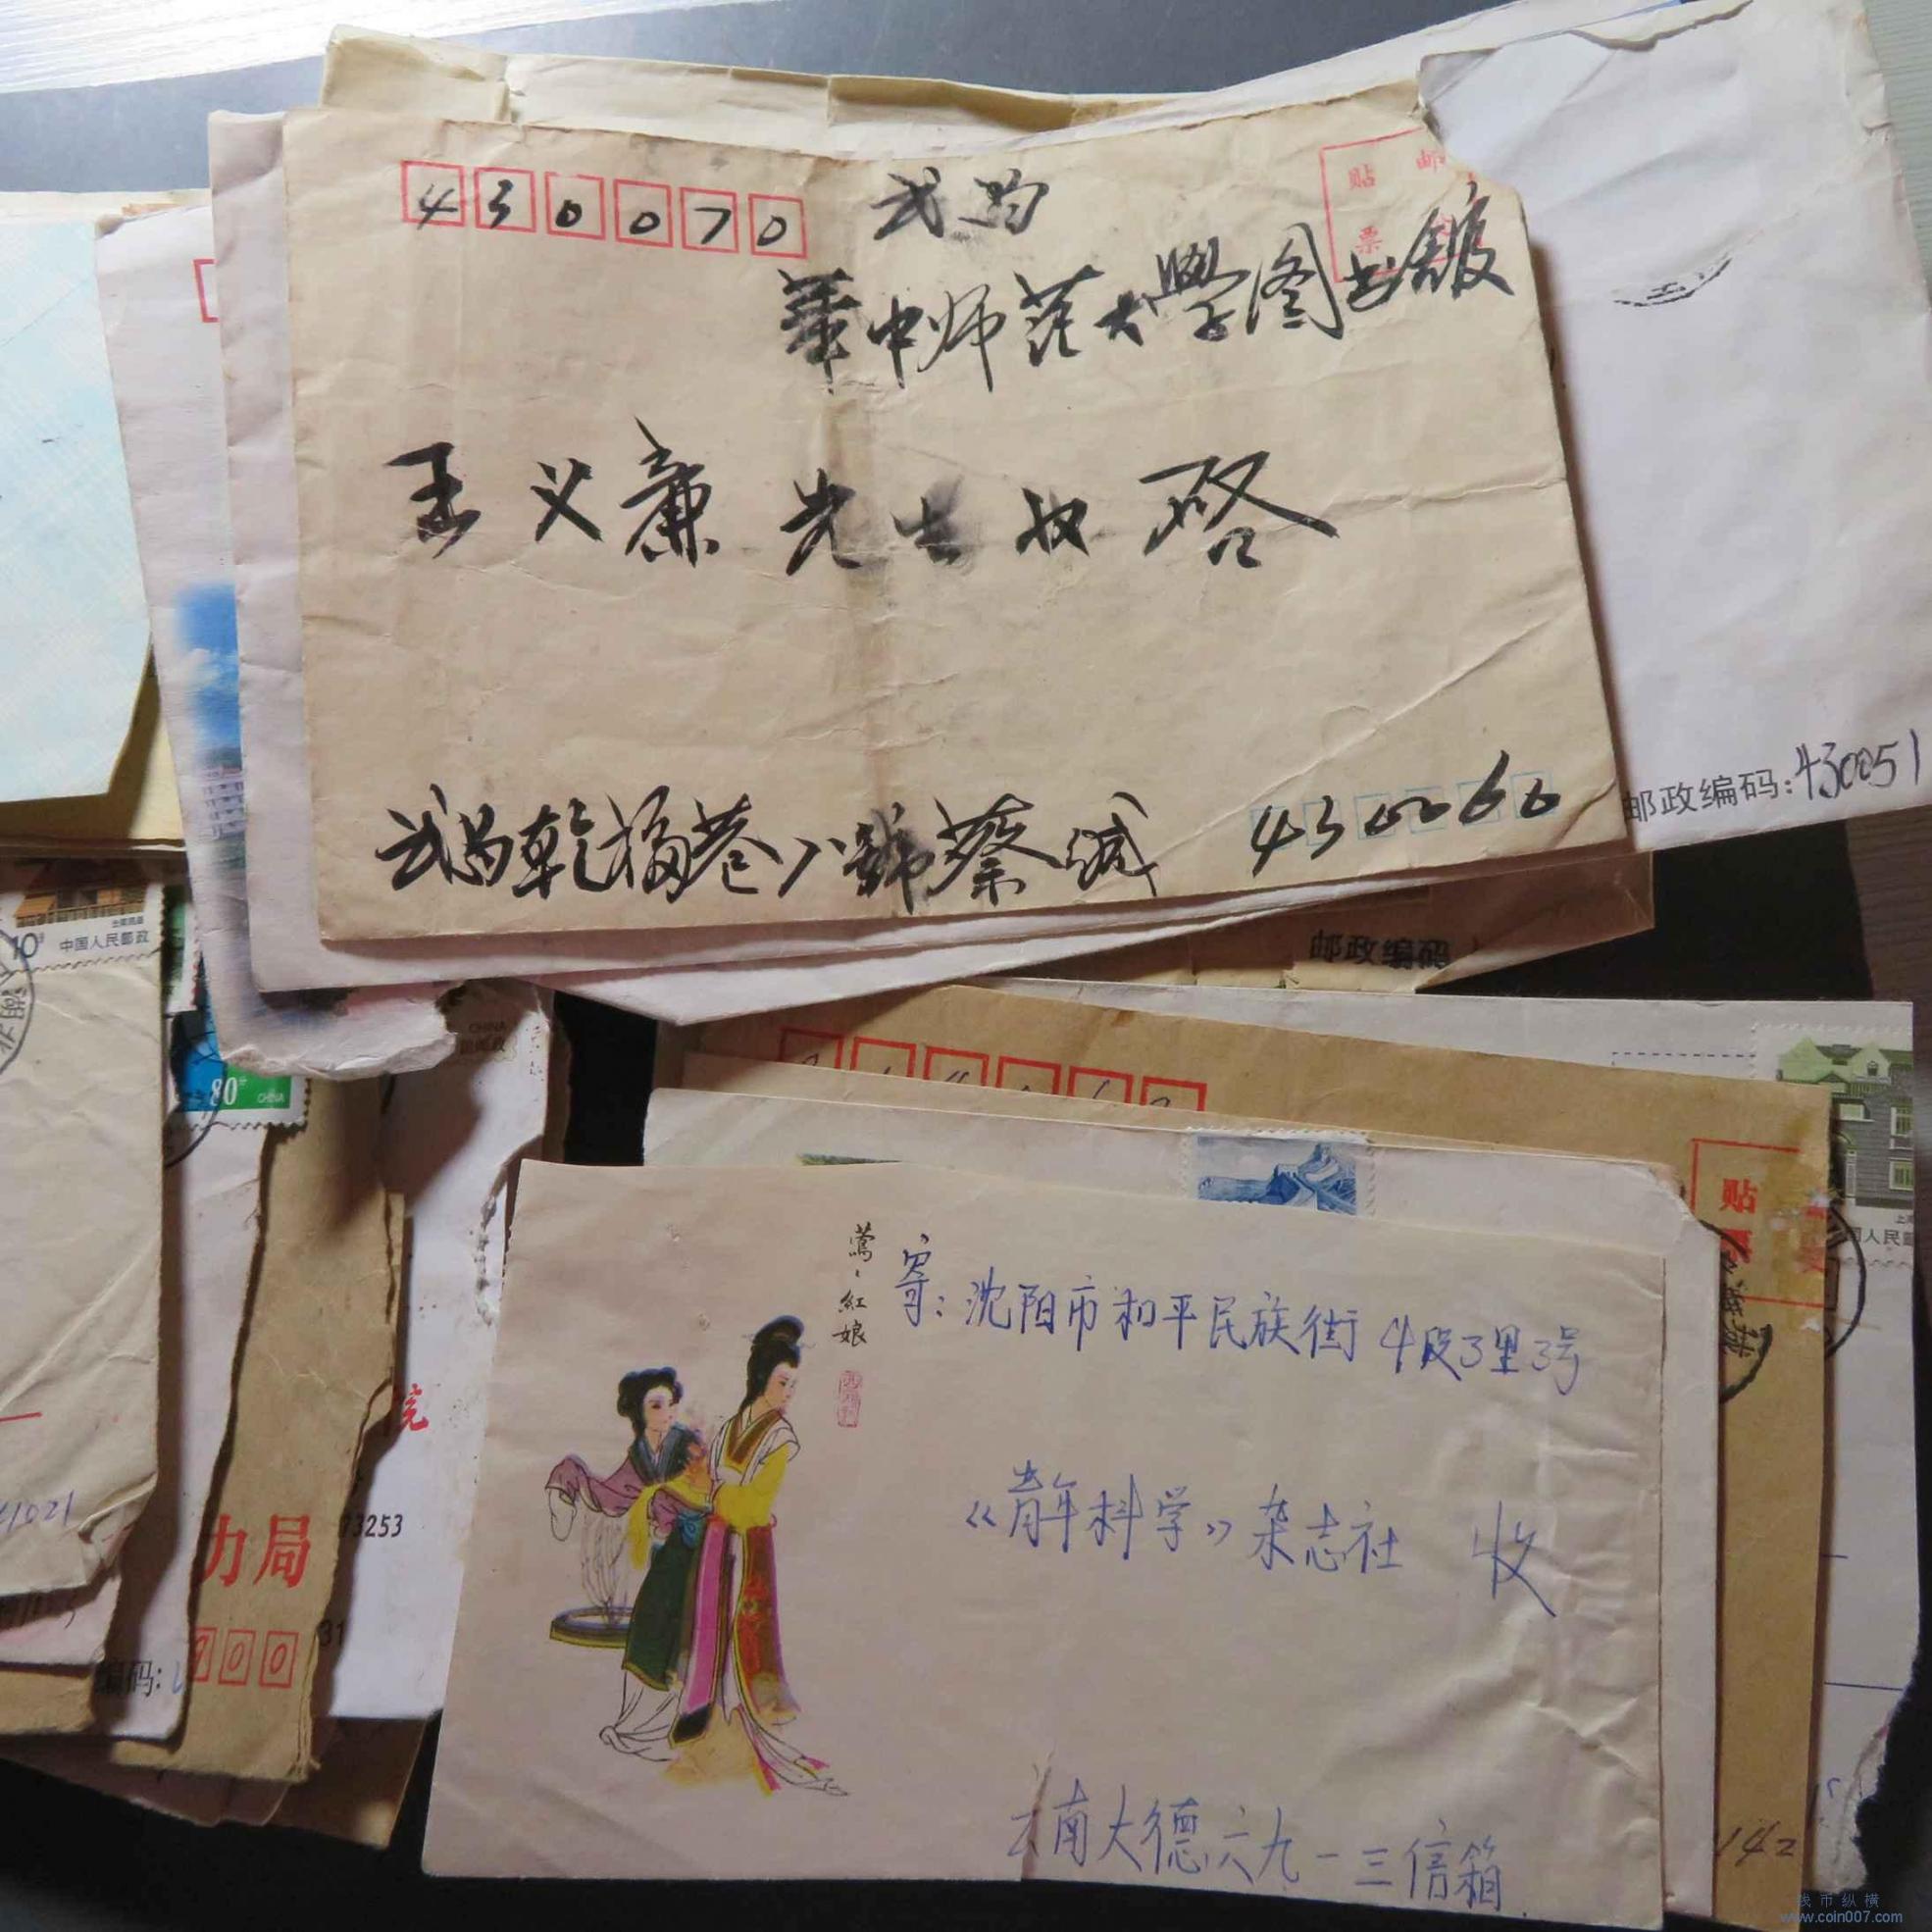 430070
武昌
華中师范大學图书館
贴 邮
票
王义廉先生收啓
武昌乾福巷八號蔡缄 430060
邮政编码:430051
邮政编码
10
中国人民邮政
80
CHINA
CHINA
贴
莺、紅娘
寄:沈阳市和平民族街4段3里3号
《青年科学》杂志社 收
云南大德六九一三信箱
院
力局
73253
31
900
编码:
142
钱币纵横
www.coin007.com